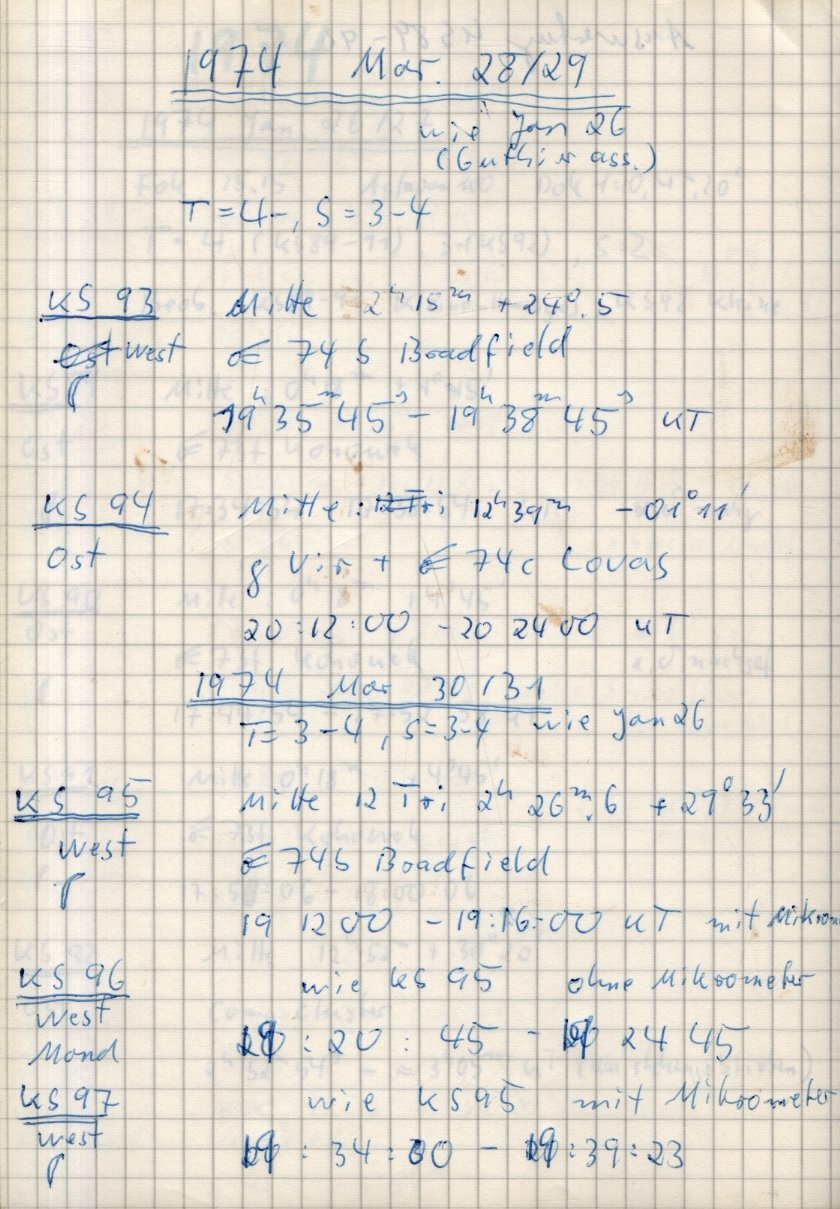 1974 Mar. 28/29
wie Jan 26
(Guthier ass.)
T = 4-, S = 3-4
KS 93 Mitte 2h 15m + 24°.5
Ost West ☄ 74 b Bradfield
19h 35m 45s - 19h 38m 45s UT
KS 94 Mitte: 12 Tri 12h 39m -01°11'
Ost γ Vir + ☄ 74c Lovas
20:12:00 - 20 24 00 UT
1974 Mar 30/31
T = 3-4, S = 3-4 wie Jan 26
KS 95 Mitte 12 Tri 2h 26m.6 + 29°33'
West ☄ 74b Bradfield
19 12 00 - 19:16:00 UT mit
KS 96 wie KS 95 ohne Mikrometer
West
Mond 19:20:45 - 19 24 45
KS 97 wie KS 95 mit Mikrometer
West 19:34:00 - 19:39:23